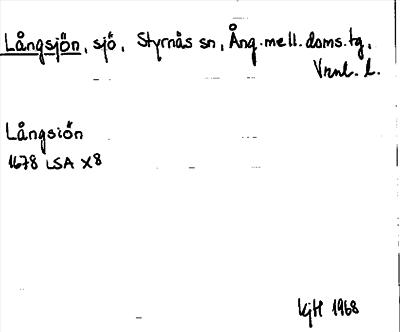 Långsjön, sjö, Styrnås sn, Ång. mell. doms. tg,
Vrnl. l.
Långsiön
1678 LSA X8
KjH 1968